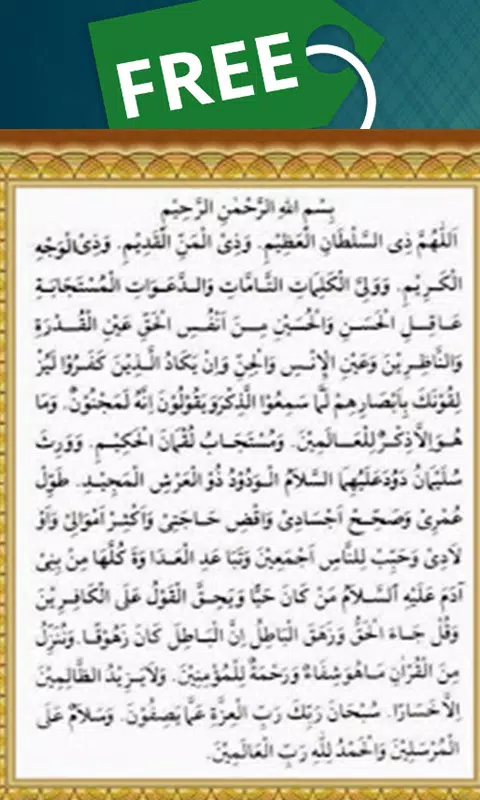 FREE
بِسْمِ اللهِ الرَّحْمٰنِ الرَّحِيْمِ
اَللّٰهُمَّ ذِى السُّلْطَانِ الْعَظِيْمِ. وَذِى الْمَنِّ الْقَدِيْمِ. وَذِى الْوَجْهِ
الْكَرِيْمِ. وَوَلِىِّ الْكَلِمَاتِ التَّامَّاتِ وَالدَّعَوَاتِ الْمُسْتَجَابَةِ
عَاقِلِ الْحَسَنِ وَالْحُسَيْنِ مِنْ اَنْفُسِ الْحَقِّ عَيْنِ الْقُدْرَةِ
وَالنَّاظِرِيْنَ وَعَيْنِ الْاِنْسِ وَالْجِنِّ وَاِنْ يَكَادُ الَّذِيْنَ كَفَرُوْا لَيُزْ
لِقُوْنَكَ بِاَبْصَارِهِمْ لَمَّا سَمِعُوا الذِّكْرَ وَيَقُوْلُوْنَ اِنَّهُ لَمَجْنُوْنٌ. وَمَا
هُوَ اِلاَّ ذِكْرٌ لِلْعَالَمِيْنَ. وَمُسْتَجَابُ لُقْمَانَ الْحَكِيْمِ. وَوَرِثَ
سُلَيْمَانُ دَوُدَ عَلَيْهِمَا السَّلاَمُ الْوَدُوْدُ ذُو الْعَرْشِ الْمَجِيْدِ. طَوِّلْ
عُمْرِىْ وَصَحِّحْ اَجْسَادِىْ وَاقْضِ حَاجَتِىْ وَاَكْثِرْ اَمْوَالِىْ وَاَوْ
لاَدِىْ وَحَبِّبْ لِلنَّاسِ اَجْمَعِيْنَ وَتَبَا عَدِ الْعَدَا وَةَ كُلَّهَا مِنْ بَنِىْ
آدَمَ عَلَيْهِ السَّلاَمُ مَنْ كَانَ حَيًّا وَيَحِقَّ الْقَوْلُ عَلَى الْكَافِرِيْنَ
وَقُلْ جَاءَ الْحَقُّ وَزَهَقَ الْبَاطِلُ اِنَّ الْبَاطِلَ كَانَ زَهُوْقًا. وَنُنَزِّلُ
مِنَ الْقُرْاٰنِ مَا هُوَ شِفَاءٌ وَرَحْمَةٌ لِلْمُؤْمِنِيْنَ. وَلاَ يَزِيْدُ الظَّالِمِيْنَ
اِلاَّ خَسَارًا. سُبْحَانَ رَبِّكَ رَبِّ الْعِزَّةِ عَمَّا يَصِفُوْنَ. وَسَلاَمٌ عَلَى
الْمُرْسَلِيْنَ وَالْحَمْدُ لِلّٰهِ رَبِّ الْعَالَمِيْنَ.